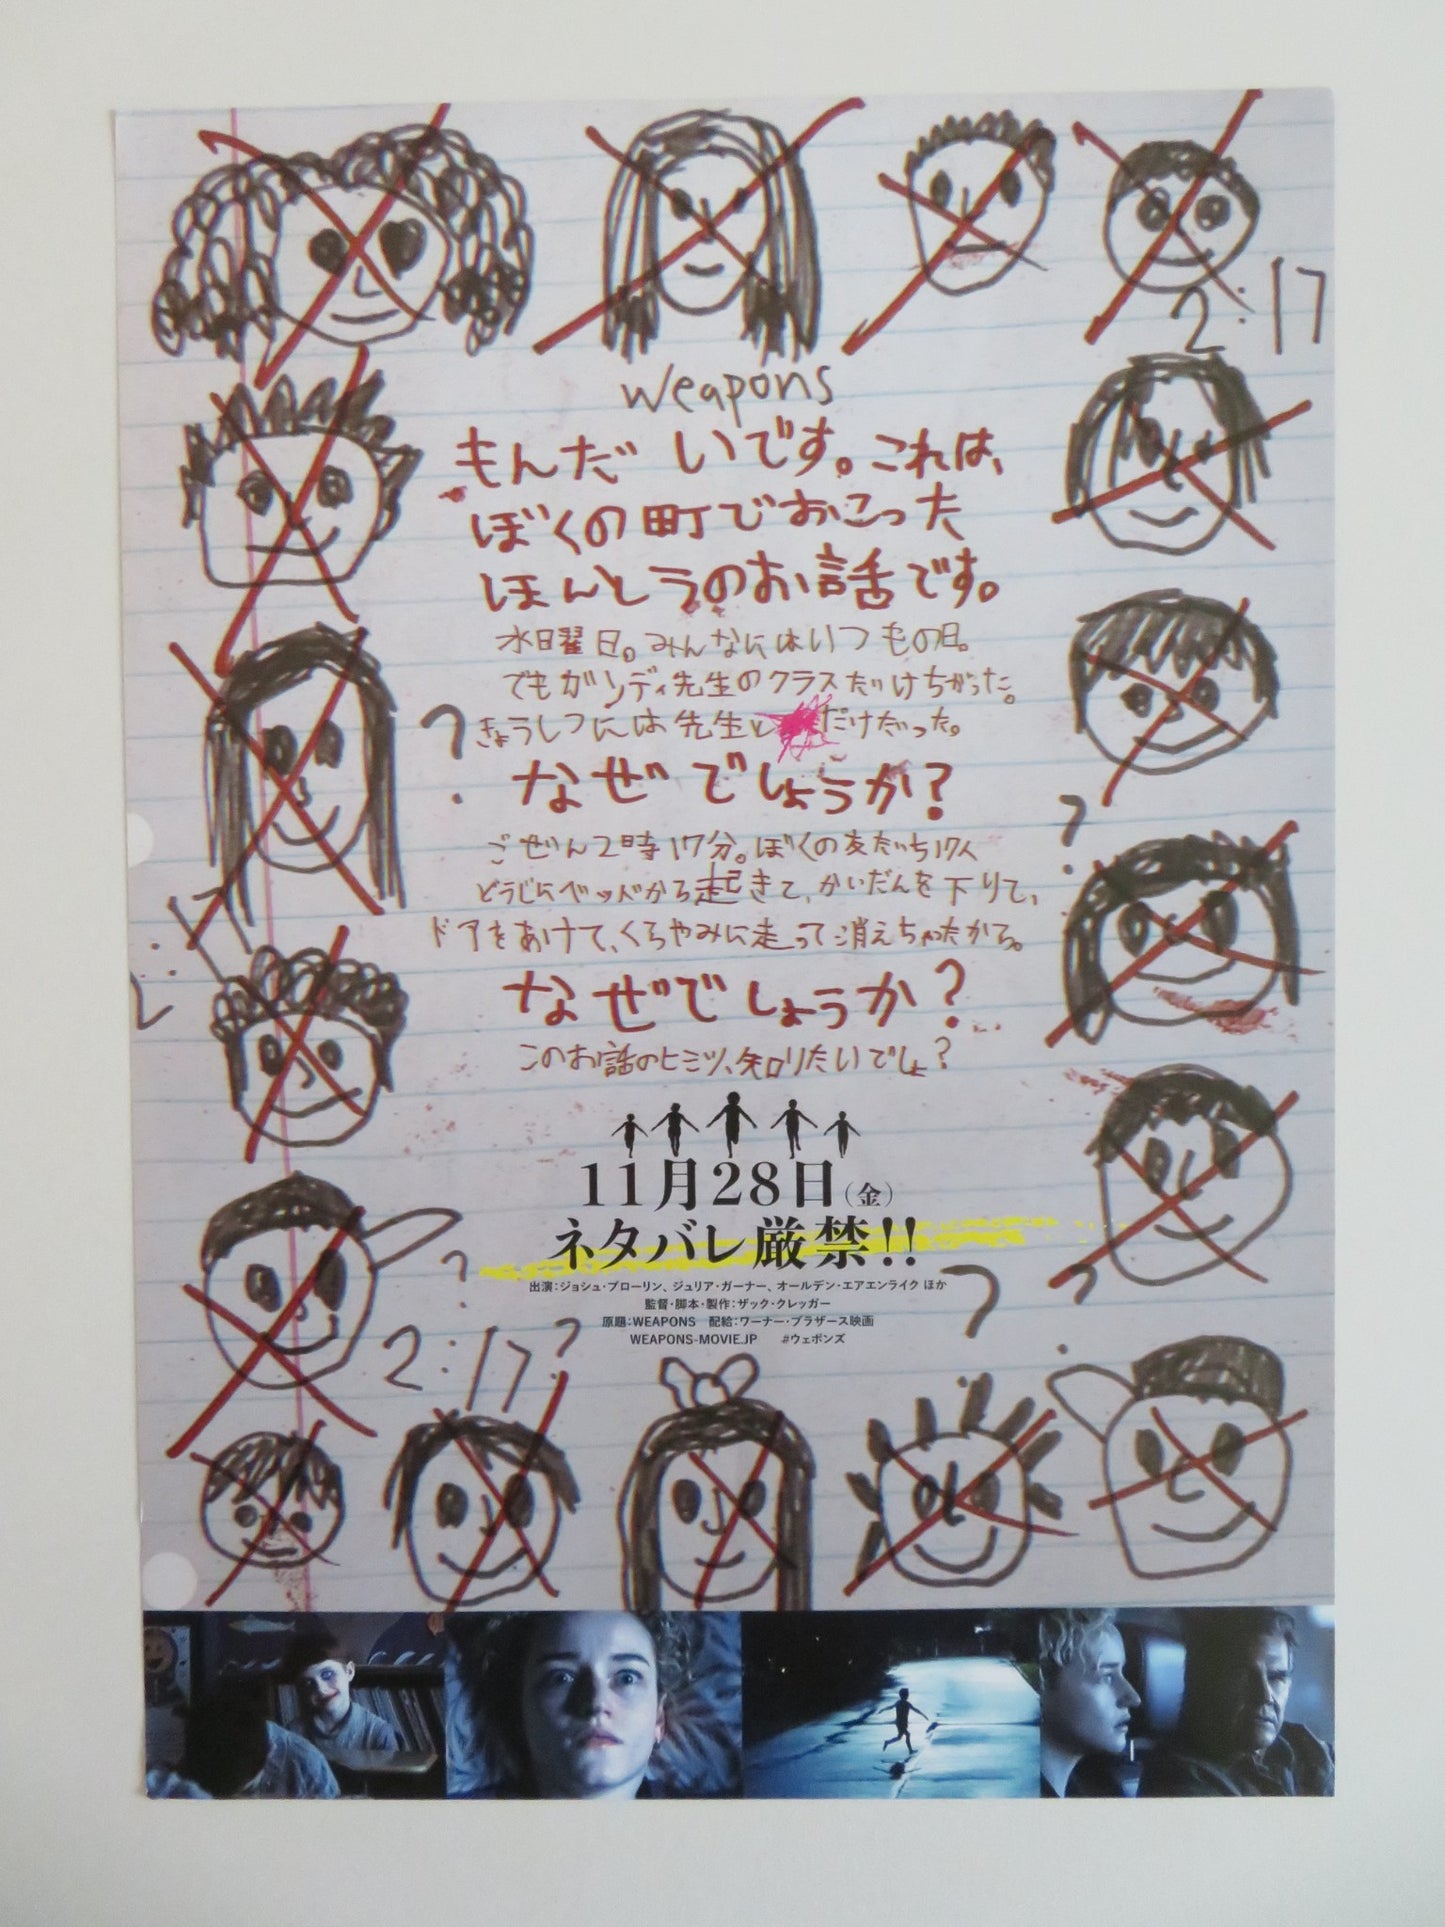 2:17
weapons
もんだいです。これは、
ぼくの町でおこった
ほんとうのお話です。
水曜日。みんなにはいつもの日。
でもガンディ先生のクラスだけちがった。
?
きょうしつには先生と
だけだった。
なぜでしょうか?
?
ごぜん2時17分。ぼくの友だち17人
どうじにベッドから起きて、かいだんを下りて、
ドアをあけて、くらやみに走って消えちゃったから。
2:17
なぜでしょうか?
このお話のヒミツ、知りたいでしょ?
11月28日(金)
ネタバレ厳禁!!
?
出演:ジョシュ・ブローリン、ジュリア・ガーナー、オールデン・エアエンライク ほか
?
?
監督・脚本・製作:ザック・クレッガー
原題:WEAPONS 配給:ワーナー・ブラザース映画
WEAPONS-MOVIE.JP #ウェポンズ
2:17?